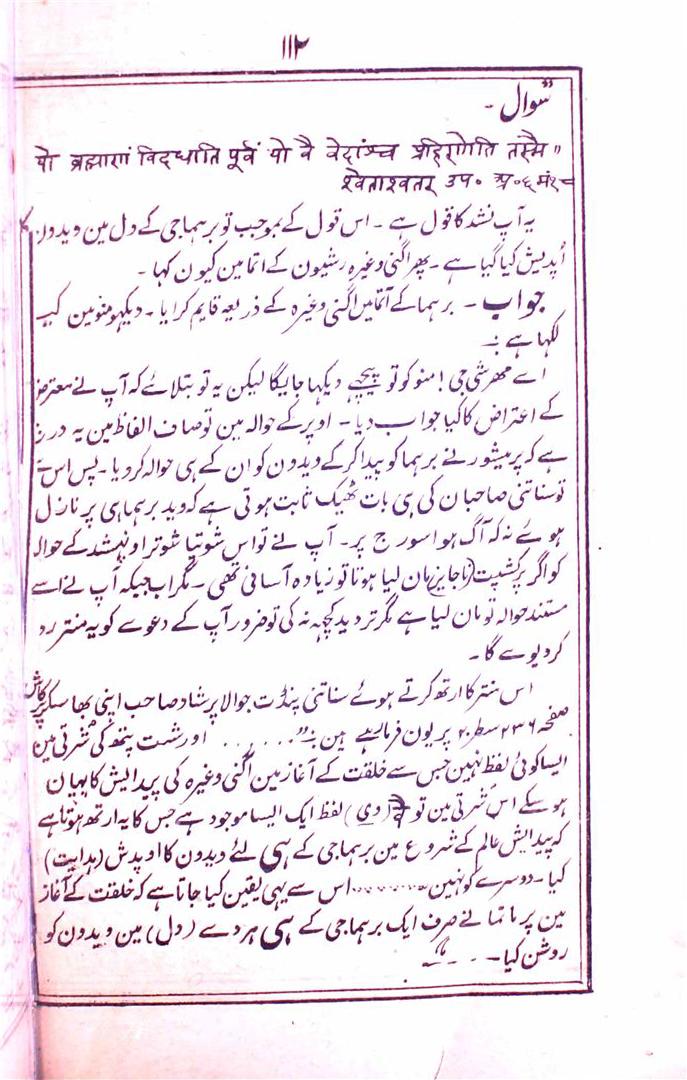 ۱۱۲
سوال۔
यो ब्रह्माणं विदधाति पूर्वं यो वै वेदांश्च प्रहिणोति तस्मै॥
श्वेताश्वतर उप॰ अ॰ ६ मं॰ १८
یہ آپ نشد کا قول ہے۔ اس قول کے بموجب تو برہماجی کے دل مین ویدون کا
اُپدیش کیا گیا ہے۔ پھر اگنی وغیرہ رشیون کے اتما مین کیون کہا۔
جواب۔ برہما کے آتما میں اگنی وغیرہ کے ذریعہ قایم کرایا۔ دیکھو منو مین کیا
لکہا ہے:۔
اے مہرشی جی! منو کو تو پیچھے دیکہا جایگا لیکن یہ تو بتلائے کہ آپ نے معترض
کے اعتراض کا کیا جواب دیا۔ اوپر کے حوالہ مین تو صاف الفاظ مین یہ درج
ہے کہ پرمیشور نے برہما کو پیدا کرکے ویدون کو ان کے ہی حوالہ کر دیا۔ پس اس سے
تو سناتنی صاحبان کی ہی بات ٹھیک ثابت ہوتی ہے کہ وید برہما ہی پر نازل
ہوئے نہ کہ آگ ہوا سورج پر۔ آپ نے تو اس شویتا شوتر اوپنشد کے حوالہ
کو اگر پرکشپت (ناجایز) مان لیا ہوتا تو زیادہ آسانی تھی۔ مگر اب جبکہ آپ نے اسے
مستند حوالہ تو مان لیا ہے مگر تردید کچہہ نہ کی تو ضرور آپ کے دعوے کو یہ منتر رد
کر دیوے گا۔
اس منتر کا ارتھ کرتے ہوئے سناتنی پنڈت جوالا پرشاد صاحب اپنی بھاسکر پرکاش
صفحہ ۲۳۶ سطر ۲۰ پر یون فرما رہے ہین:۔ ”........ اور شت پتھ کی شُرتی مین
ایسا کوئی لفظ نہین جس سے خلقت کے آغاز مین اگنی وغیرہ کی پیدایش کا بیان
ہو سکے اس شُرتی مین تو वै (وی) لفظ ایک ایسا موجود ہے جس کا یہ ارتھ ہوتا ہے
کہ پیدایش عالم کے شروع مین برہماجی کے ہی لئے ویدون کا اوپدش (ہدایت)
کیا۔ دوسرے کو نہین ........ اس سے یہی یقین کیا جاتا ہے کہ خلقت کے آغاز
مین پرماتما نے صرف ایک برہماجی کے ہی ہردے (دل) مین ویدون کو
روشن کیا۔ ...“